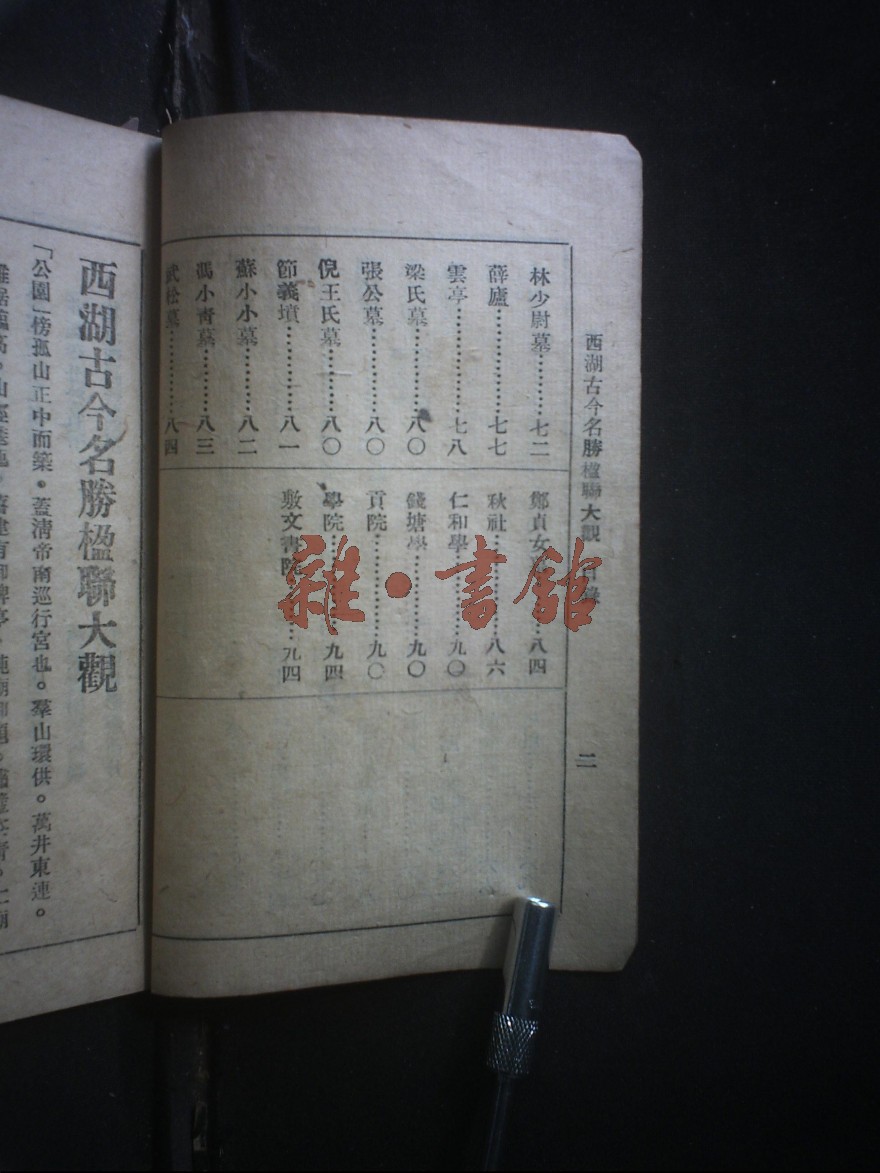 西湖古今名勝楹聯大觀 目錄
二
林少尉墓…………七二
薛廬…………七七
雲亭…………七八
梁氏墓…………八〇
張公墓…………八〇
倪王氏墓…………八〇
節義墳…………八一
蘇小小墓…………八二
馮小靑墓…………八三
武松墓…………八四
鄭貞女…………八四
秋社…………八六
仁和學…………九〇
錢塘學…………九〇
貢院…………九〇
學院…………九四
敷文書院…………九四
雜·書館
西湖古今名勝楹聯大觀
「公園」傍孤山正中而築。蓋淸帝南巡行宮也。羣山環供。萬井東連。